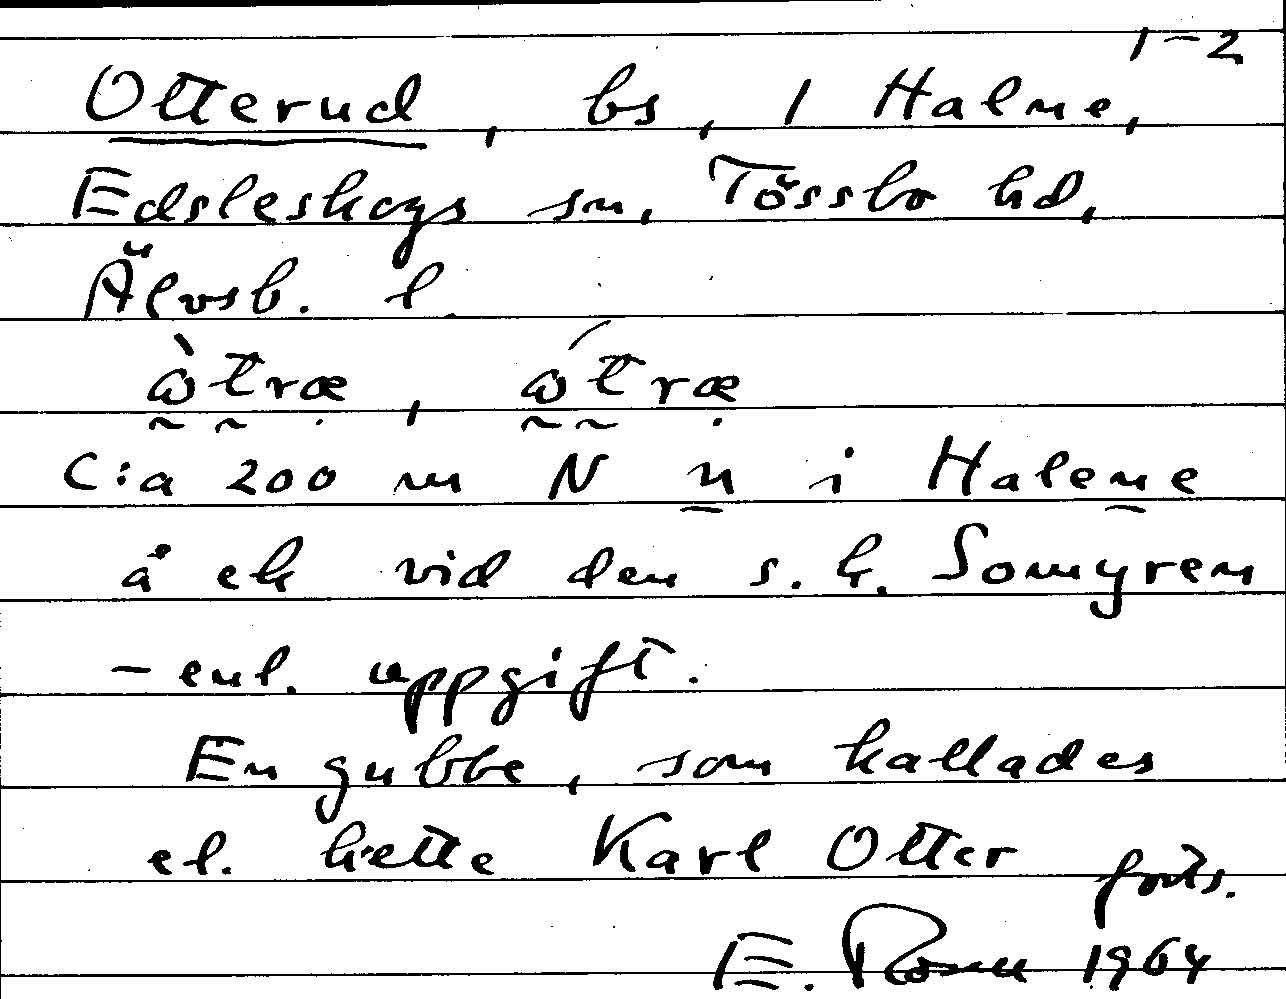 1-2
Otterud, bs, 1 Halne,
Edsleskogs sn, Tössbo hd,
Älvsb. l.
ὼtræ, ώtræ
C:a 200 m N n i Halene
å ek vid den s.k. Somyren
- enl. uppgift.
En gubbe, som kallades
el. hette Karl Otter forts.
E. Rosen 1964